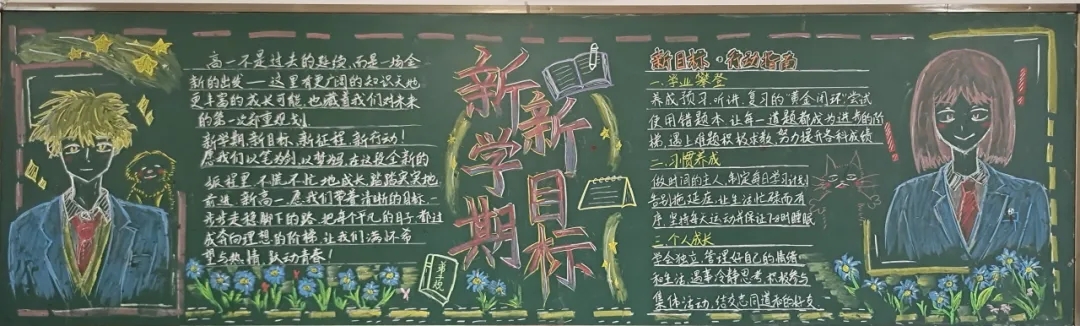 高一不是过去的延续,而是一场全
新的出发——这里有更广阔的知识天地
更丰富的成长可能,也藏着我们对未来
的第一次郑重规划。
新学期,新目标,新征程,新行动!
愿我们以笔为剑,以梦为马,在这段全新的
旅程里,不慌不忙地成长,踏踏实实地
前进。新高一,愿我们带着清晰的目标一
步步走稳脚下的路,把每个平凡的日子,都过
成奔向理想的阶梯,让我们满怀希
望与热情,跃动青春!
新学期
新目标
新目标·行动指南
一.学业攀登
养成预习、听讲、复习的“黄金闭环”尝试
使用错题本,让每一道题都成为进步的阶
梯,遇上难题积极求教,努力提升各科成绩
二.习惯养成
做时间的主人,制定每日学习计划
告别拖延症,让生活忙碌而有
序,坚持每天运动并保证7小时睡眠
三.个人成长
学会独立,管理好自己的情绪
和生活,遇事冷静思考,积极参与
集体活动,结交志同道合的好友